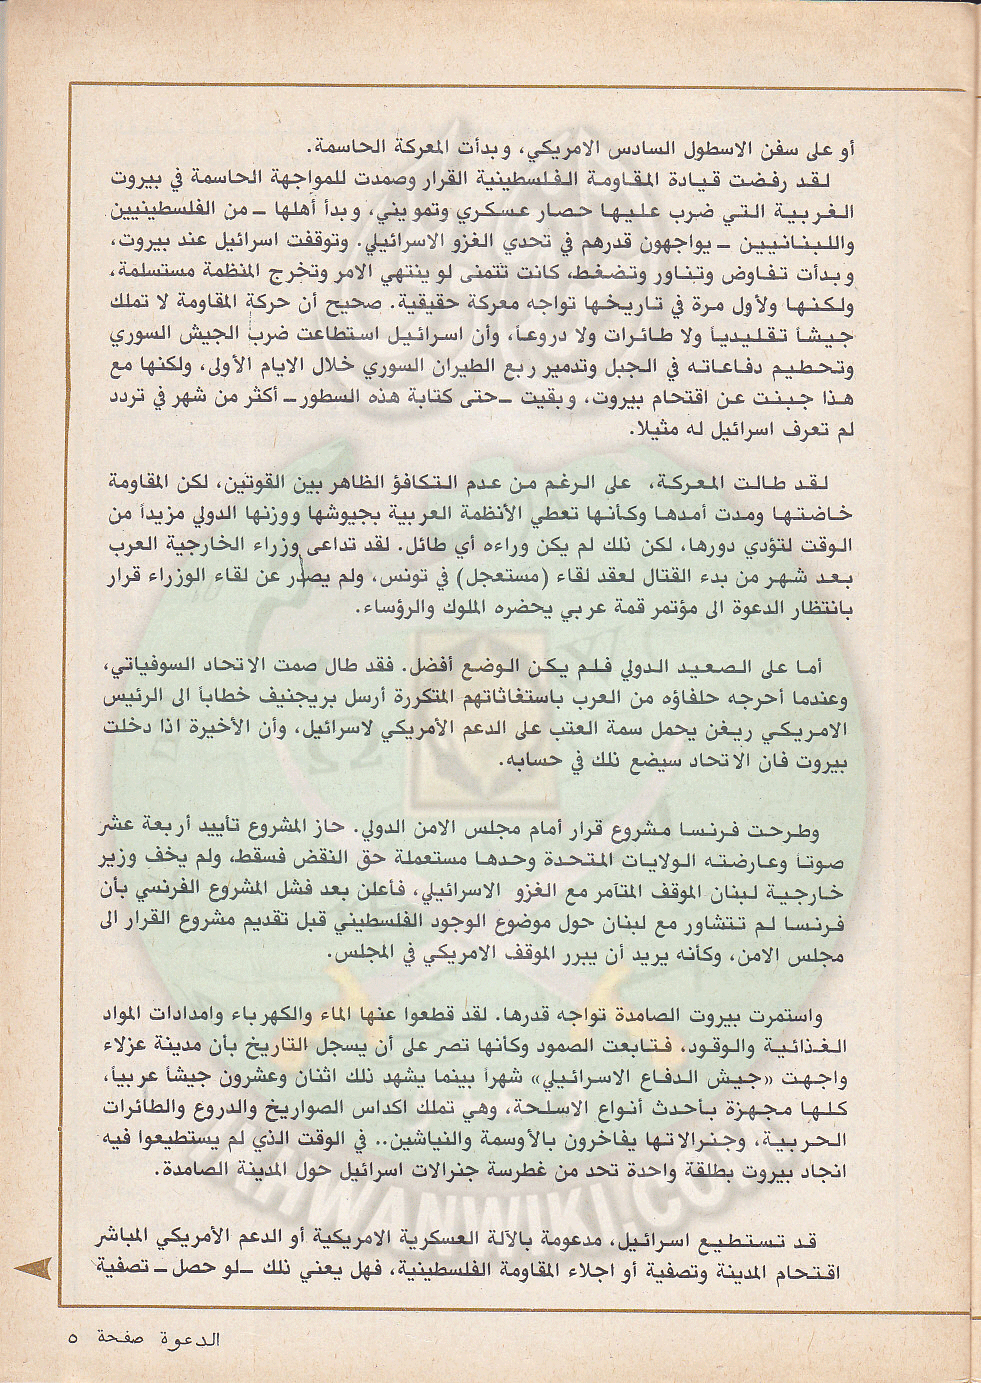 أو على سفن الاسطول السادس الامريكي، وبدأت المعركة الحاسمة.
لقد رفضت قيادة المقاومة الفلسطينية القرار وصمدت للمواجهة الحاسمة في بيروت
الغربية التي ضرب عليها حصار عسكري وتمويني، وبدأ أهلها ــ من الفلسطينيين
واللبنانيين ــ يواجهون قدرهم في تحدي الغزو الاسرائيلي. وتوقفت اسرائيل عند بيروت،
وبدأت تفاوض وتناور وتضغط، كانت تتمنى لو ينتهي الامر وتخرج المنظمة مستسلمة،
ولكنها ولأول مرة في تاريخها تواجه معركة حقيقية. صحيح أن حركة المقاومة لا تملك
جيشاً تقليدياً ولا طائرات ولا دروعاً، وأن اسرائيل استطاعت ضرب الجيش السوري
وتحطيم دفاعاته في الجبل وتدمير ربع الطيران السوري خلال الايام الأولى، ولكنها مع
هذا جبنت عن اقتحام بيروت، وبقيت ــحتى كتابة هذه السطورــ أكثر من شهر في تردد
لم تعرف اسرائيل له مثيلا.
لقد طالت المعركة، على الرغم من عدم التكافؤ الظاهر بين القوتين، لكن المقاومة
خاضتها ومدت أمدها وكأنها تعطي الأنظمة العربية بجيوشها ووزنها الدولي مزيداً من
الوقت لتؤدي دورها، لكن ذلك لم يكن وراءه أي طائل. لقد تداعى وزراء الخارجية العرب
بعد شهر من بدء القتال لعقد لقاء (مستعجل) في تونس، ولم يصدر عن لقاء الوزراء قرار
بانتظار الدعوة الى مؤتمر قمة عربي يحضره الملوك والرؤساء.
أما على الصعيد الدولي فلم يكن الوضع أفضل. فقد طال صمت الاتحاد السوفياتي،
وعندما أحرجه حلفاؤه من العرب باستغاثاتهم المتكررة أرسل بريجنيف خطاباً الى الرئيس
الامريكي ريغن يحمل سمة العتب على الدعم الأمريكي لاسرائيل، وأن الأخيرة اذا دخلت
بيروت فان الاتحاد سيضع ذلك في حسابه.
وطرحت فرنسا مشروع قرار أمام مجلس الامن الدولي. حاز المشروع تأييد أربعة عشر
صوتاً وعارضته الولايات المتحدة وحدها مستعملة حق النقض فسقط، ولم يخف وزير
خارجية لبنان الموقف المتآمر مع الغزو الاسرائيلي، فأعلن بعد فشل المشروع الفرنسي بأن
فرنسا لم تتشاور مع لبنان حول موضوع الوجود الفلسطيني قبل تقديم مشروع القرار الى
مجلس الامن، وكأنه يريد أن يبرر الموقف الامريكي في المجلس.
واستمرت بيروت الصامدة تواجه قدرها. لقد قطعوا عنها الماء والكهرباء وامدادات المواد
الغذائية والوقود، فتابعت الصمود وكأنها تصر على أن يسجل التاريخ بأن مدينة عزلاء
واجهت «جيش الدفاع الاسرائيلي» شهراً بينما يشهد ذلك اثنان وعشرون جيشاً عربياً،
كلها مجهزة بأحدث أنواع الاسلحة، وهي تملك اكداس الصواريخ والدروع والطائرات
الحربية، وجنرالاتها يفاخرون بالأوسمة والنياشين.. في الوقت الذي لم يستطيعوا فيه
انجاد بيروت بطلقة واحدة تحد من غطرسة جنرالات اسرائيل حول المدينة الصامدة.
قد تستطيع اسرائيل، مدعومة بالآلة العسكرية الامريكية أو الدعم الأمريكي المباشر
اقتحام المدينة وتصفية أو اجلاء المقاومة الفلسطينية، فهل يعني ذلك ــلو حصل ــ تصفية
الدعوة صفحة ٥
IKHWANWIKI.COM